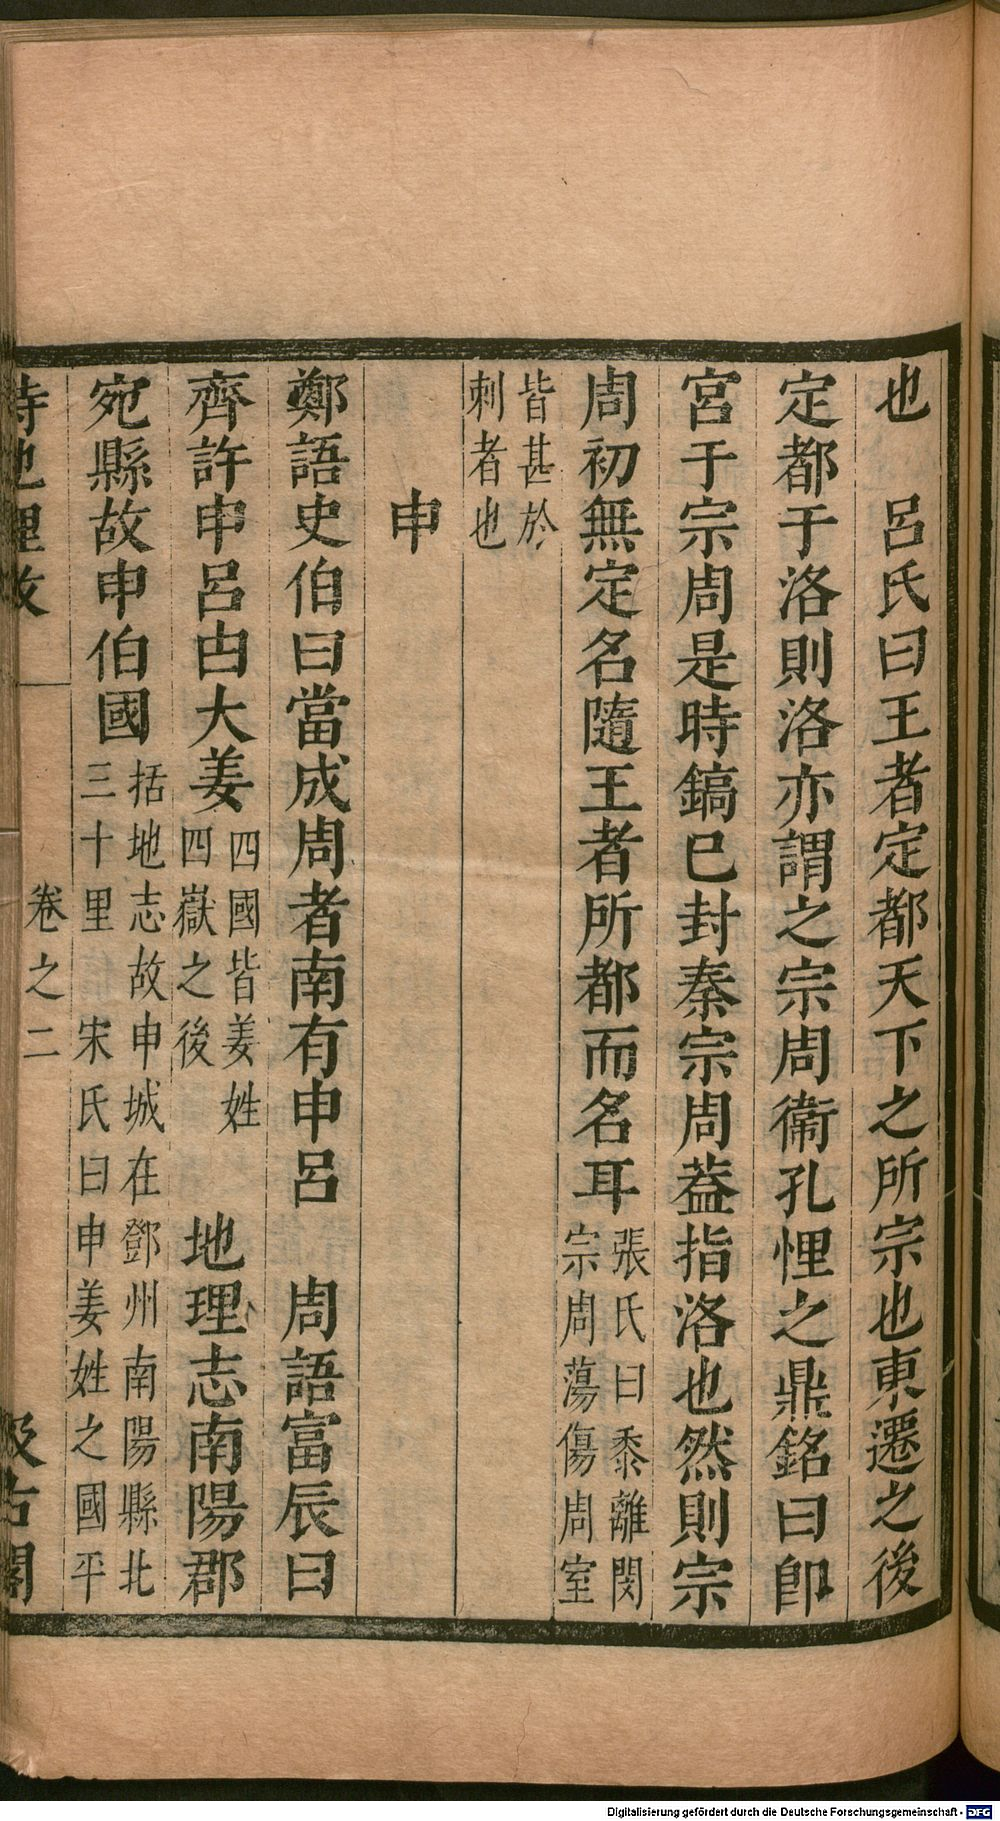 也　呂氏曰王者定都天下之所宗也東遷之後
定都于洛則洛亦謂之宗周衛孔悝之鼎銘曰卽
宮于宗周是時鎬已封秦宗周葢指洛也然則宗
周初無定名隨王者所都而名耳張氏曰黍離閔宗周蕩傷周室
皆甚於刺者也
申
鄭語史伯曰當成周者南有申呂　周語富辰曰
齊許申呂由大姜四國皆姜姓四嶽之後　地理志南陽郡
宛縣故申伯國括地志故申城在鄧州南陽縣北三十里　宋氏曰申姜姓之國平
詩地理攷　卷之二　汲古閣
Digitalisierung gefördert durch die Deutsche Forschungsgemeinschaft - DFG